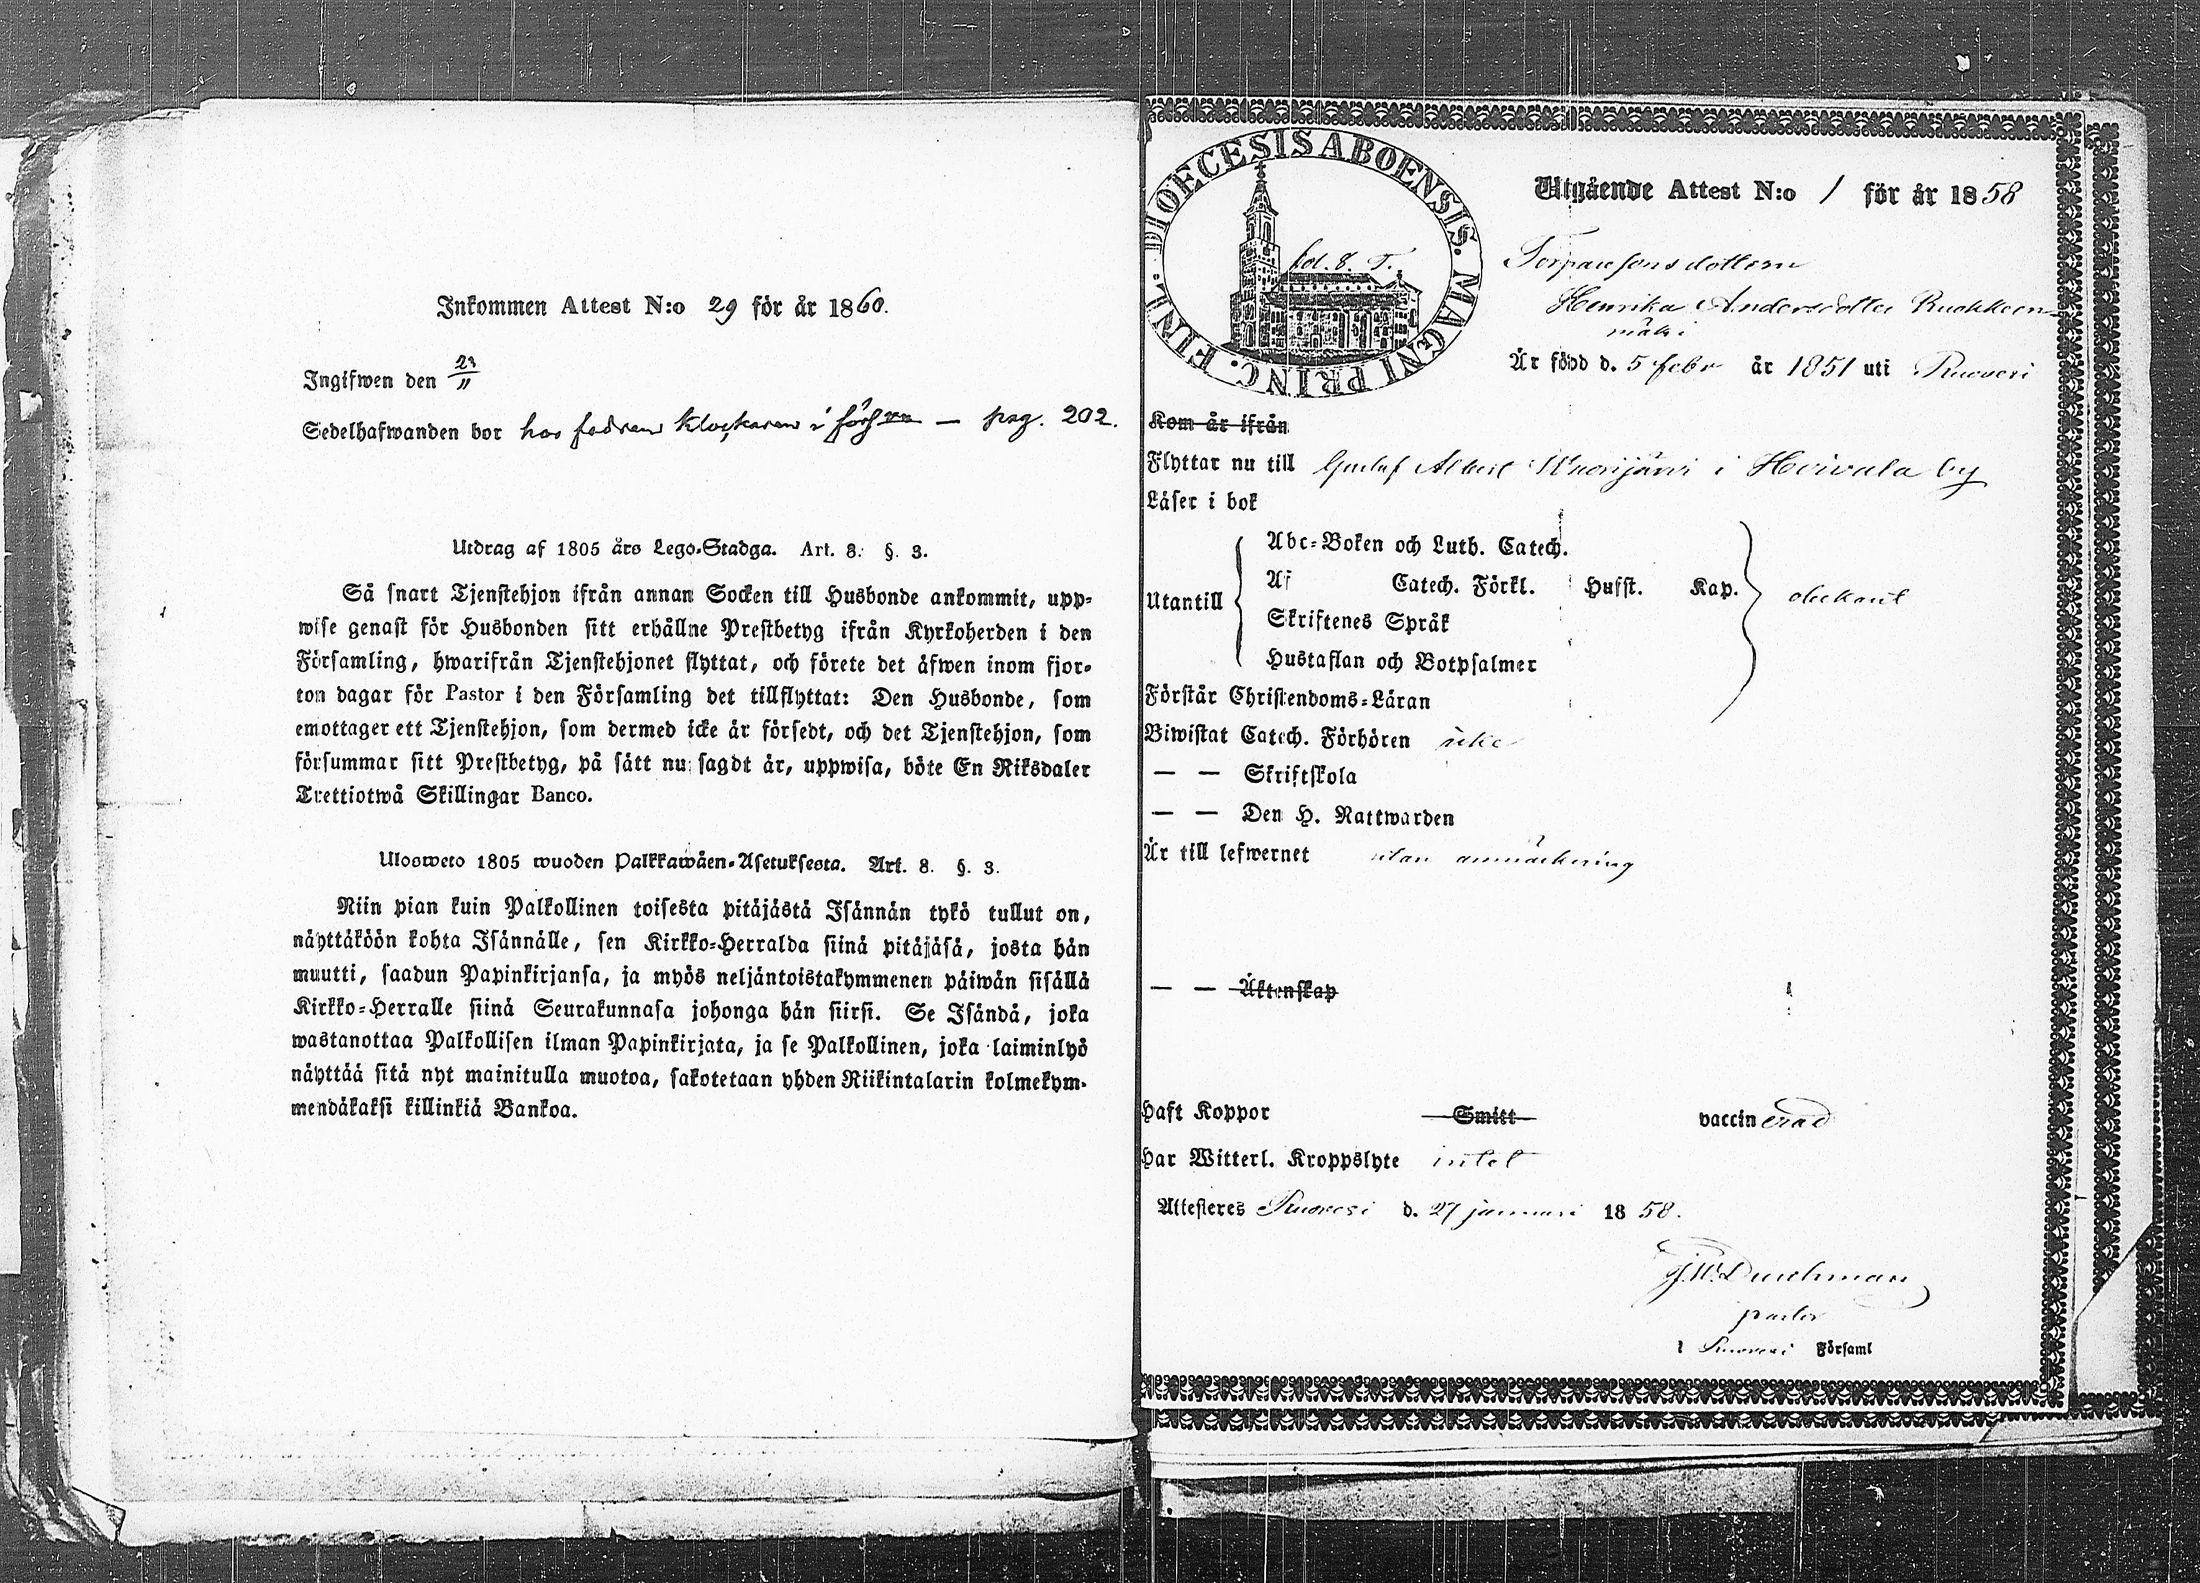 Inkommen Attest N:o 29 för år 1860.
Ingifwen den 23/11
Sedelhafwanden bor hos fadren Klockaren i förs — pag. 202.
Utdrag af 1805 års Lego-Stadga. Art. 8. §. 3.
Så snart Tjenstehjon ifrån annan Socken till Husbonde ankommit, upp-
wise genast för Husbonden sitt erhållne Prestbetyg ifrån Kyrkoherden i den
Församling, hwarifrån Tjenstehjonet flyttat, och förete det äfwen inom fjor-
ton dagar för Pastor i den Församling det tillflyttat: Den Husbonde, som
emottager ett Tjenstehjon, som dermed icke är försedt, och det Tjenstehjon, som
försummar sitt Prestbetyg, på sätt nu sagdt är, uppwisa, böte En Riksdaler
Trettiotwå Skillingar Banco.
Ulosweto 1805 wuoden Palkkawäen-Asetuksesta. Art. 8. §. 3.
Niin pian kuin Palkollinen toisesta pitäjästä Isännän tykö tullut on,
näyttäköön kohta Isännälle, sen Kirkko-Herralda siinä pitäjäsä, josta hän
muutti, saadun Papinkirjansa, ja myös neljäntoistakymmenen päiwän sisällä
Kirkko-Herralle siinä Seurakunnasa johonga hän siirsi. Se Isändä, joka
wastanottaa Palkollisen ilman Papinkirjata, ja se Palkollinen, joka laiminlyö
näyttää sitä nyt mainitulla muotoa, sakotetaan yhden Riikintalarin kolmekym-
mendäkaksi killinkiä Bankoa.
DIOECESIS ABOENSIS. MAGNI PRINC. FINL.
fol. 8. T.
Utgående Attest N:o 1 för år 1858
Torparesons dottern
Henrika Andersdotter Ruokkeen-
mäki
Är född d. 5 febr år 1851 uti Ruovesi
Kom år ifrån
Flyttar nu till Gustaf Albert Wuorijärvi i Hoivala by
Läser i bok
Abc-Boken och Luth. Catech.
Utantill Af Catech. Förkl. Hufst. Kap. obekant
Skriftenes Språk
Hustaflan och Botpsalmer
Förstår Christendoms-Läran
Biwistat Catech. Förhören icke
— — Skriftskola
— — Den H. Nattwarden
Är till lefwernet utan anmärkning
— — Äktenskap
Haft Koppor Smitt vaccinerad
Har Witterl. Kroppslyte intet
Attesteres Ruovesi d. 27 januari 1858.
pastor
i Ruovesi Församl